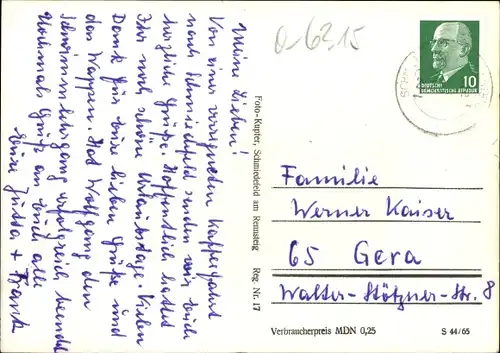 Meine Lieben!
Von einer verregneten Kaffeefahrt
nach Schmiedefeld senden wir Euch
herzliche Grüße. Hoffentlich hattet
Ihr noch schöne Urlaubstage. Vielen
Dank für Eure lieben Grüße und
das Wappen. Hat Wolfgang den
Schwimmlehrgang erfolgreich beendet
Nochmals Grüße an Euch alle
Eure Jutta + Frank
Foto-Kupfer, Schmiedefeld am Rennsteig Reg. Nr. 17
0-6315
10
DEUTSCHE
DEMOKRATISCHE REPUBLIK
Familie
Werner Kaiser
65 Gera
Walter-Stötzner-Str. 8
Verbraucherpreis MDN 0,25
S 44/65